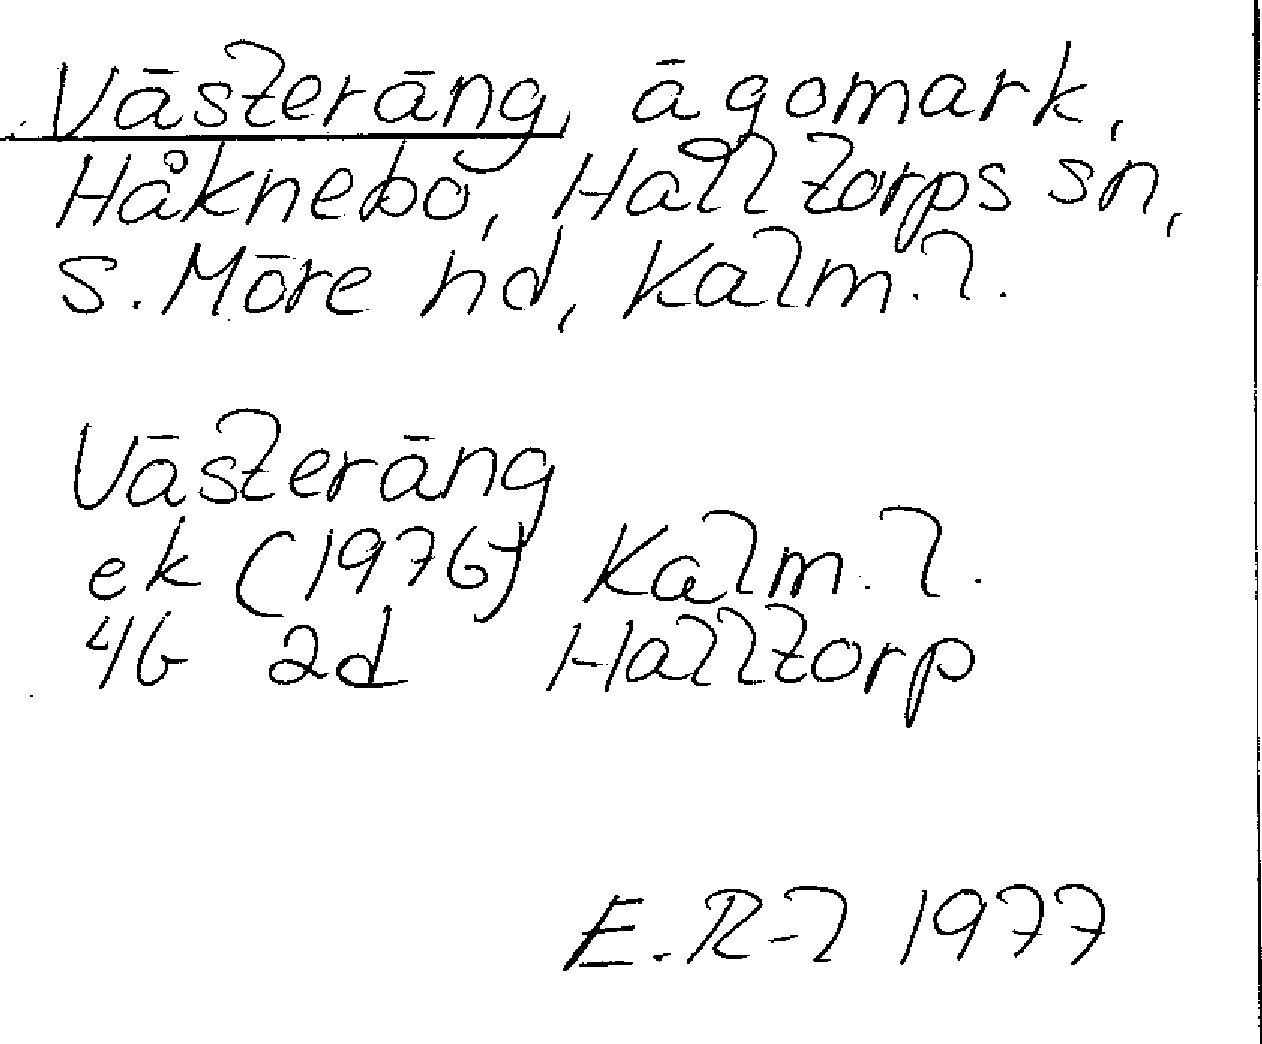 Västeräng, ägomark,
Håknebo, Halltorps sn,
S. Möre hd, Kalm. l.
Västeräng
ek (1976) Kalm. l.
4G 2d Halltorp
E. R-l 1977